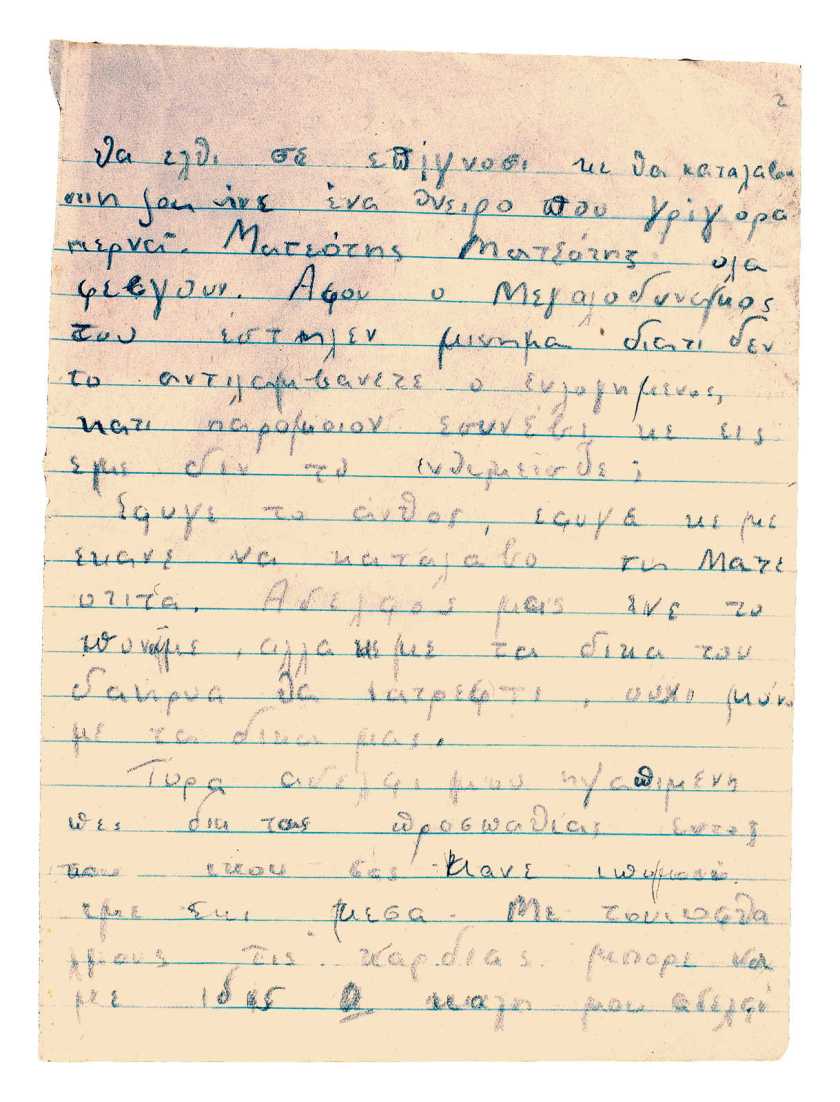 2
θα ελθι σε επίγνοσι κε θα καταλαβου
στιη ζοη ήνε ένα όνειρο που γρίγορα
περνά. Ματεότης Ματεότης ολα
φεβγουν. Αφου ο Μεγαλοδυναμος
του έστηλεν μινημα διατι δεν
το αντιλαμβανετε ο ενλογημενος,
κατι πάρομοιον εσυνέβι κε εις
εμε δεν το ενθιμείσθε;
Έφυγε το άνθος, εφυγε κε με
εκανε να καταλαβο τιη Ματε
οτιτα. Αδελφος μας ενε το
πουνμε, αλλα κε με τα δικα του
δακηρυα θα ιατρεφτι, ουχι μόνο
με τα δικα μας.
Τορα αδελφι μου ηγαπιμενη
πες δια τας προσπαθιας εντος
του ικου σας κανε ιπομονι
εμε εκι μεσα. Με τουσοφθα
λμους τις καρδιας μπορε να
με ιδις α καλη μου αδελφι